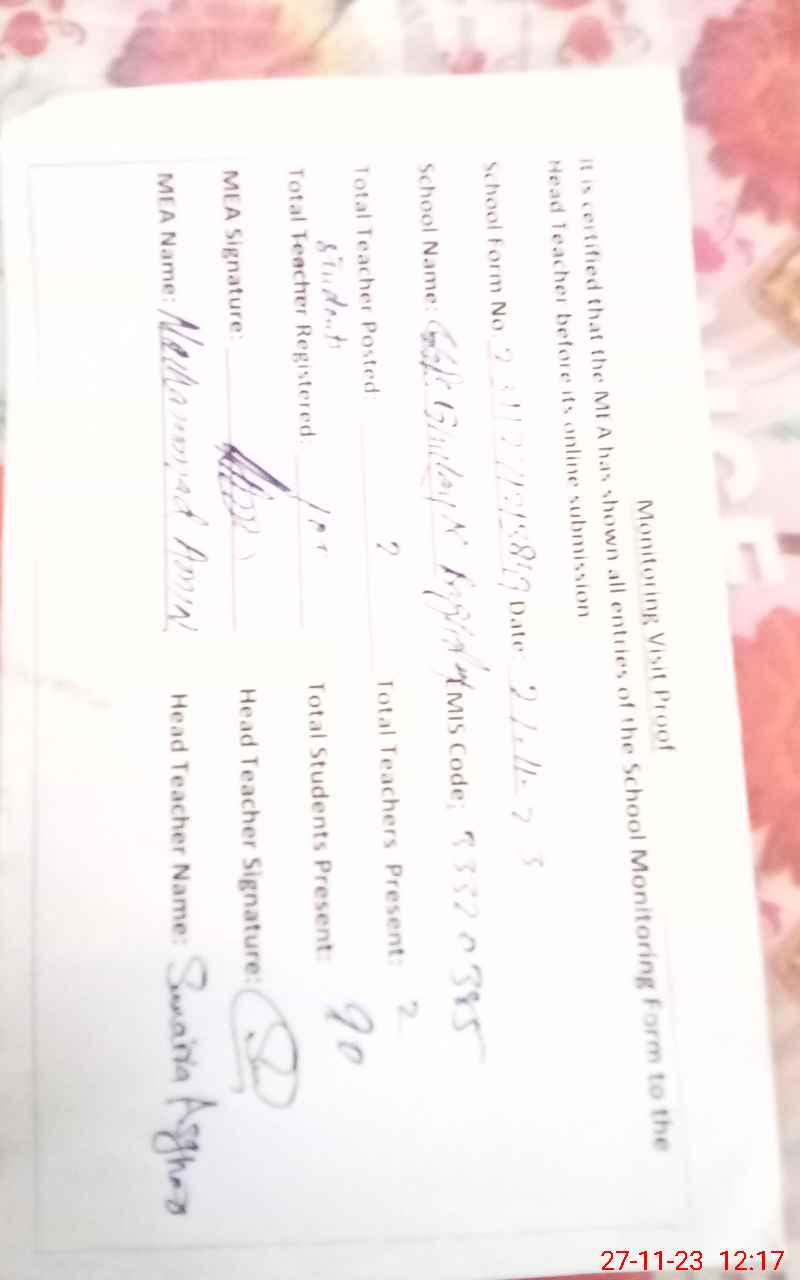 Monitoring Visit Proof
It is certified that the MEA has shown all entries of the School Monitoring Form to the
Head Teacher before its online submission
School Form No. Date: 27-11-23
School Name: EMIS Code:
Total Teacher Posted: 2 Total Teachers Present: 2
Student
Total Teacher Registered: Total Students Present: 90
MEA Signature: Head Teacher Signature:
MEA Name: Muhammad Amin Head Teacher Name: Sumaira Asghar
27-11-23 12:17